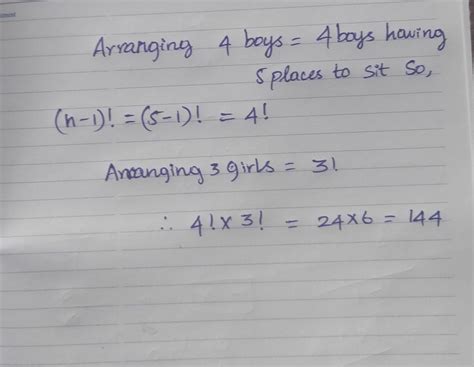 Arranging 4 boys = 4 boys having
5 places to sit So,
(n-1)! = (5-1)! = 4!
Arranging 3 girls = 3!
∴ 4! x 3! = 24 x 6 = 144